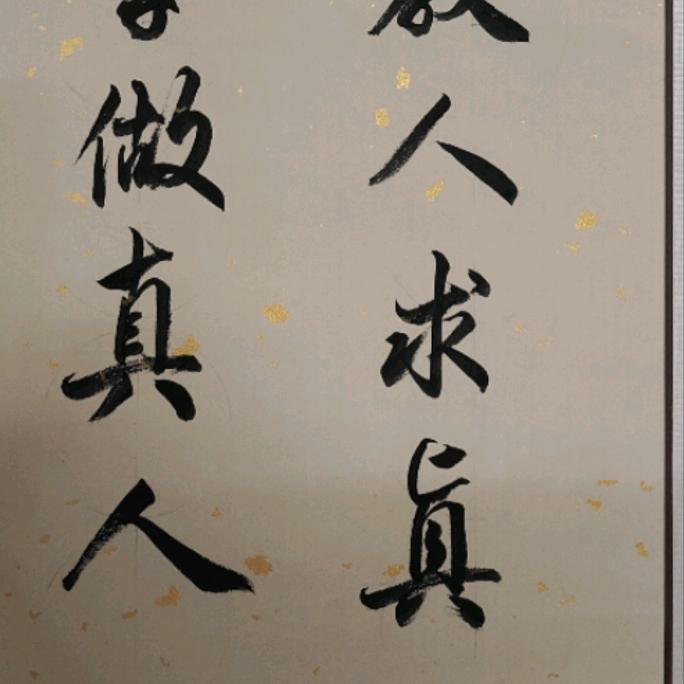 人求眞
做真人